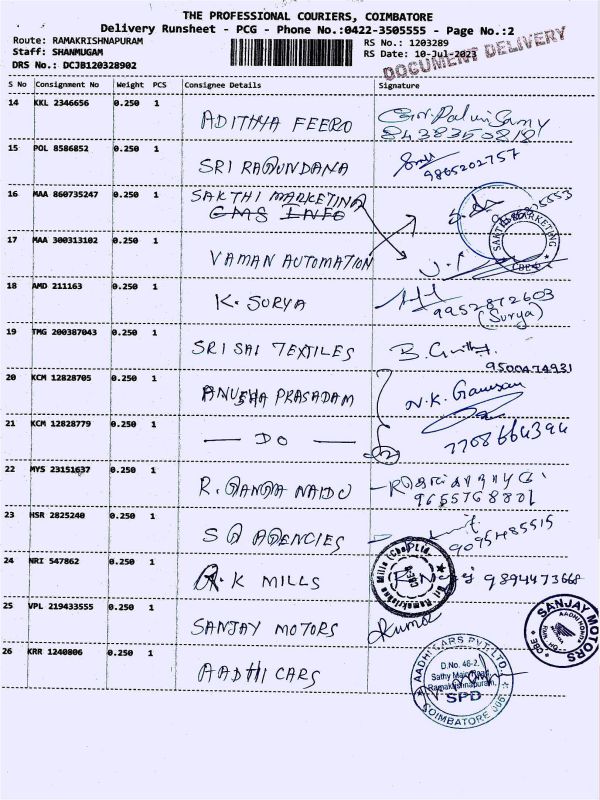 THE PROFESSIONAL COURIERS, COIMBATORE
Delivery Runsheet - PCG - Phone No.:0422-3505555 - Page No.:2
Route: RAMAKRISHNAPURAM
RS No.: 1203289
Staff: SHANMUGAM
RS Date: 10-Jul-2023
DRS No.: DCJB120328902
DOCUMENT DELIVERY
S No Consignment No Weight PCS Consignee Details Signature
14 KKL 2346656 0.250 1 ADITHYA FEERO
15 POL 8586852 0.250 1 SRI RAGUNDANA 9865202757
16 MAA 860735247 0.250 1 SAKTHI MARKETING
GMS INFO
SAKTHI MARKETING
CBE-6
17 MAA 300313102 0.250 1 VAMAN AUTOMATION
18 AMD 211163 0.250 1 K. SURYA 9952872603
(Surya)
19 TMG 200387043 0.250 1 SRI SAI TEXTILES
9500474931
20 KCM 12828705 0.250 1 ANUSHA PRASADAM N.K. Ganesan
21 KCM 12828779 0.250 1 — DO — 7708664394
22 MYS 23151637 0.250 1 R. GANGA NAIDU
9655768801
23 HSR 2825240 0.250 1 S G AGENCIES
9095485515
24 NRI 547862 0.250 1 R. K MILLS
Sri Ramakrishna Mills (Cbe) Ltd.
25 VPL 219433555 0.250 1 SANJAY MOTORS Kumar
SANJAY MOTORS
CBE
26 KRR 1240806 0.250 1 AADHI CARS
AADHI CARS PVT. LTD.
D.No. 46-2,
Sathy Main Road,
Ramakrishnapuram,
SPD
COIMBATORE